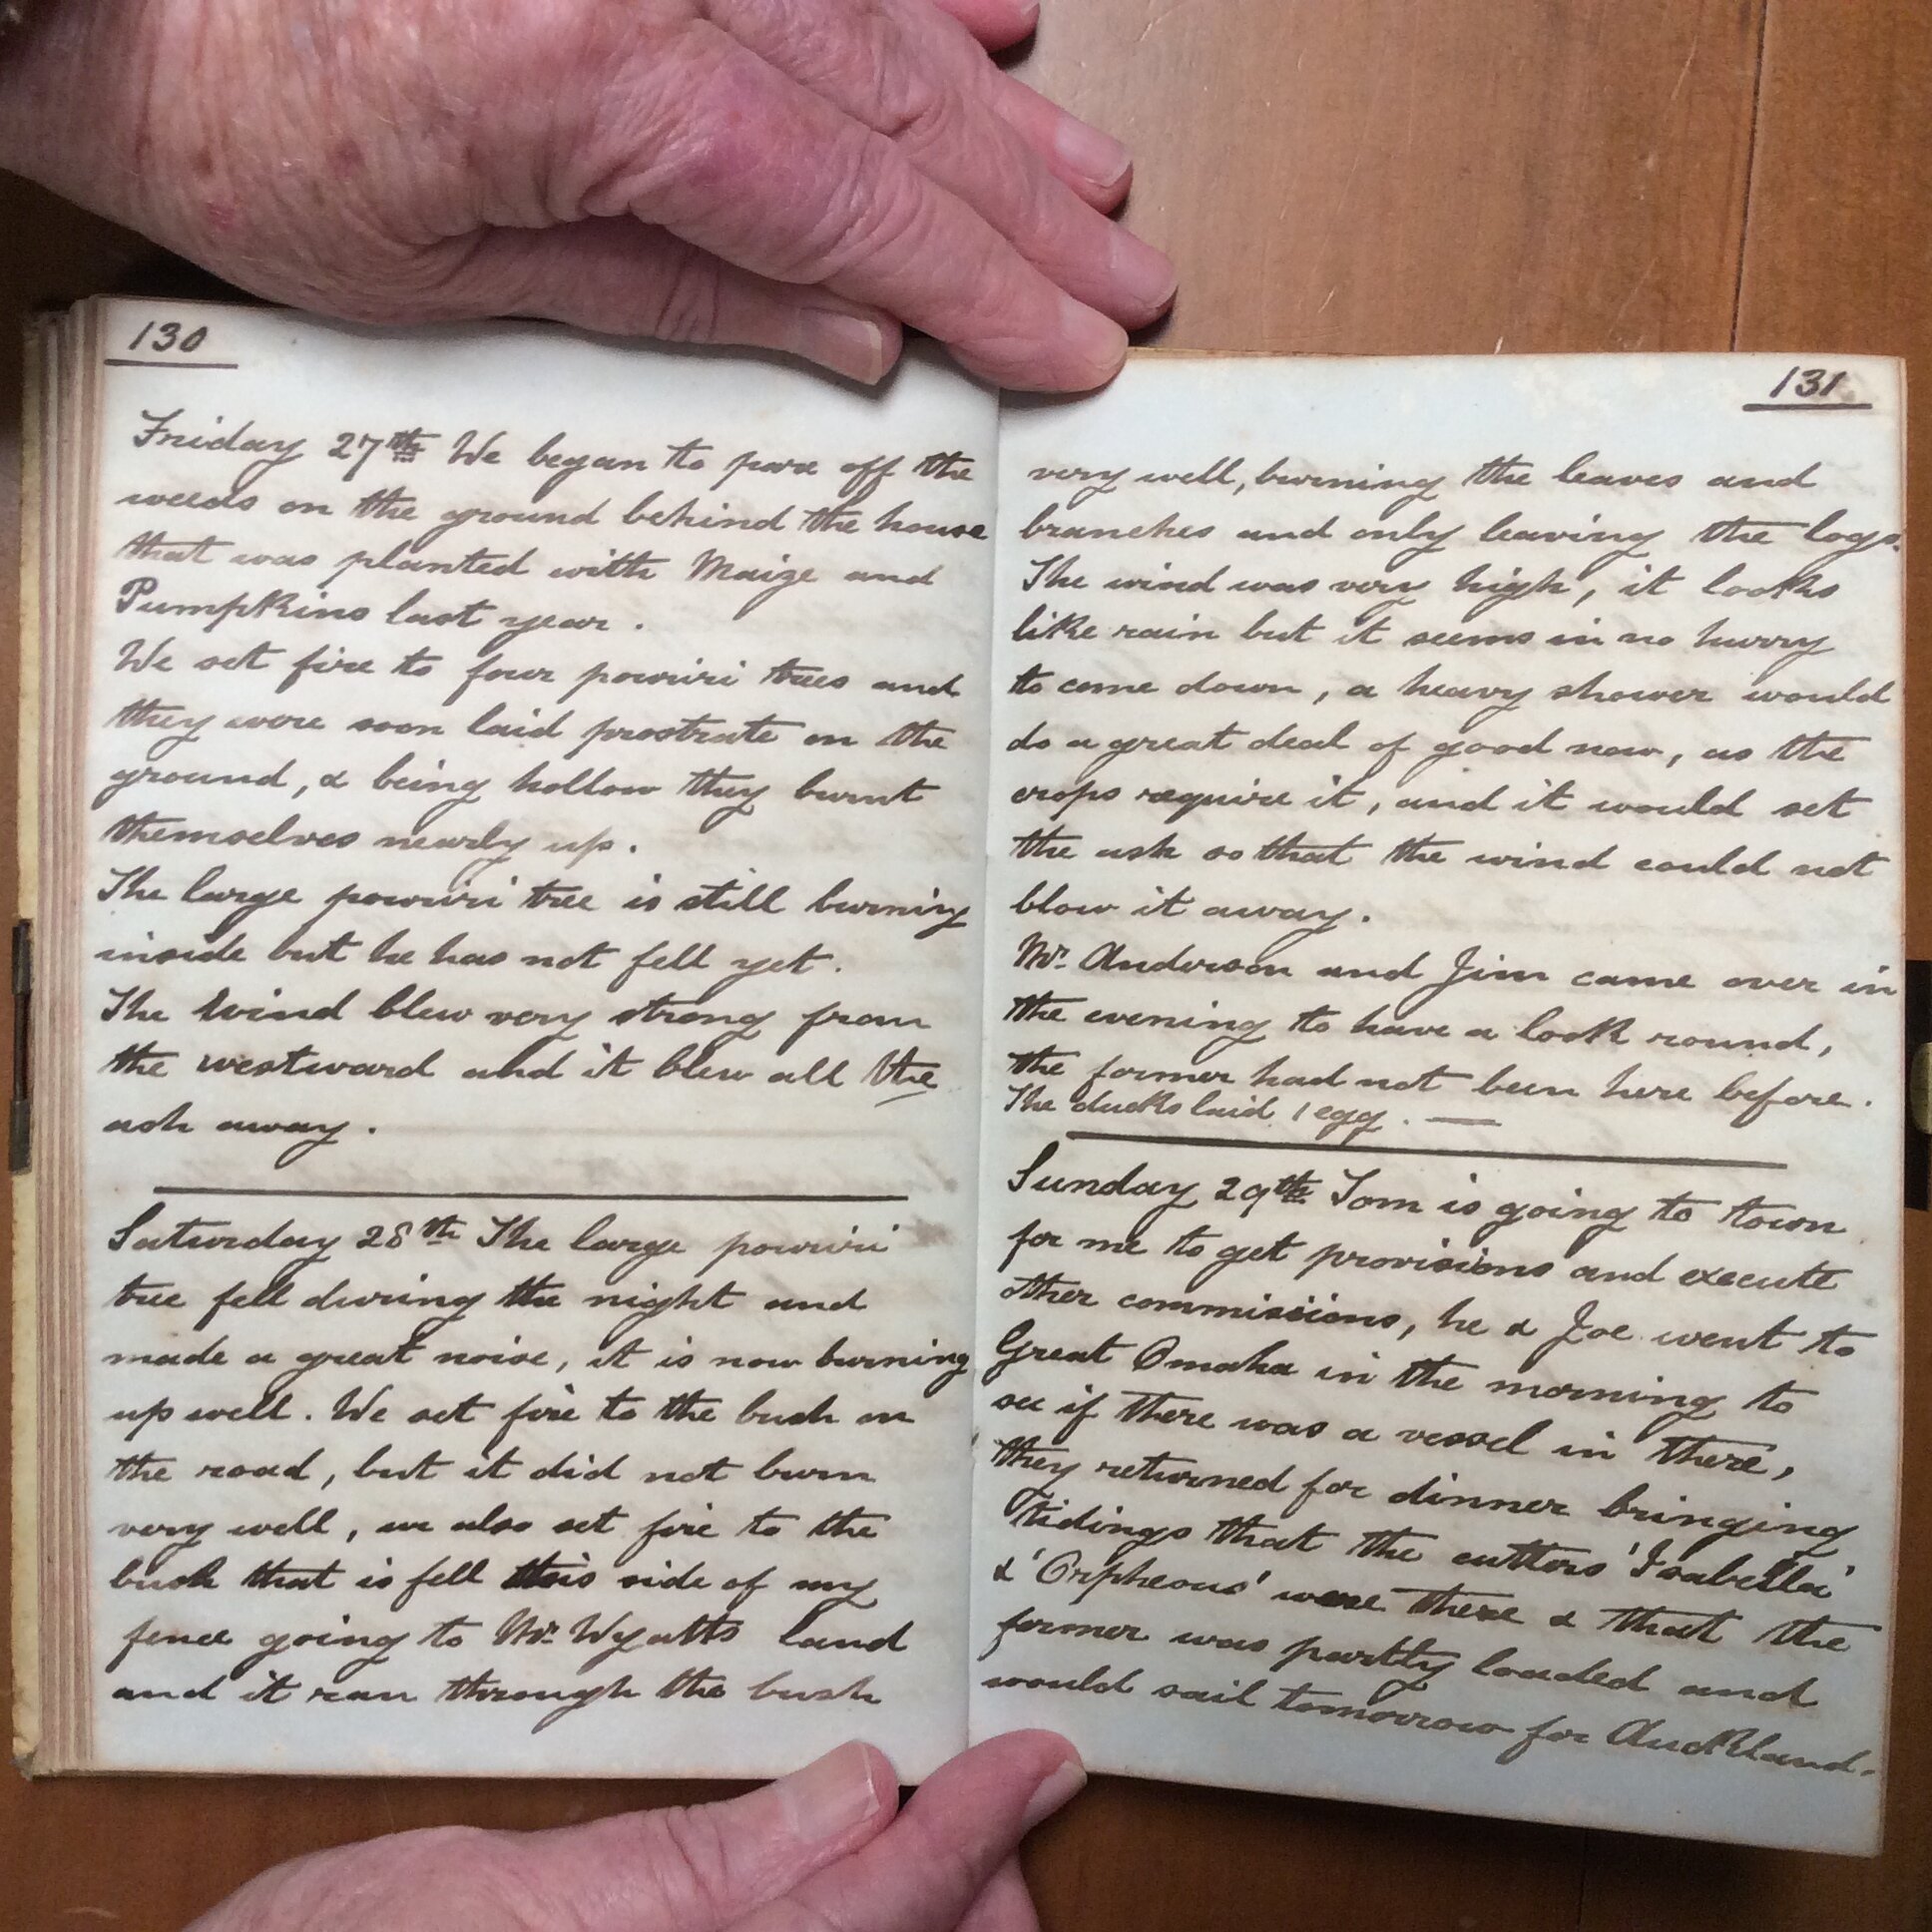 130
Friday 27th We began to pare off the
weeds on the ground behind the house
that was planted with Maize and
Pumpkins last year.
We set fire to four powriri trees and
they were soon laid prostrate on the
ground, & being hollow they burnt
themselves nearly up.
The large powriri tree is still burning
inside but he has not fell yet.
The wind blew very strong from
the westward and it blew all the
ash away.
Saturday 28th The large powriri
tree fell during the night and
made a great noise, it is now burning
up well. We set fire to the bush on
the road, but it did not burn
very well, we also set fire to the
bush that is fell this side of my
fence going to Mr. Wyatts land
and it ran through the bush
131
very well, burning the leaves and
branches and only leaving the logs.
The wind was very high, it looks
like rain but it seems in no hurry
to come down, a heavy shower would
do a great deal of good now, as the
crops require it, and it would set
the ash so that the wind could not
blow it away.
Mr. Anderson and Jim came over in
the evening to have a look round,
the former had not been here before.
The ducks laid 1 egg. —
Sunday 29th Tom is going to town
for me to get provisions and execute
other commissions, he & Joe went to
Great Omaha in the morning to
see if there was a vessel in there,
they returned for dinner bringing
tidings that the cutters 'Isabella'
& 'Orpheous' were there & that the
former was partly loaded and
would sail tomorrow for Auckland.